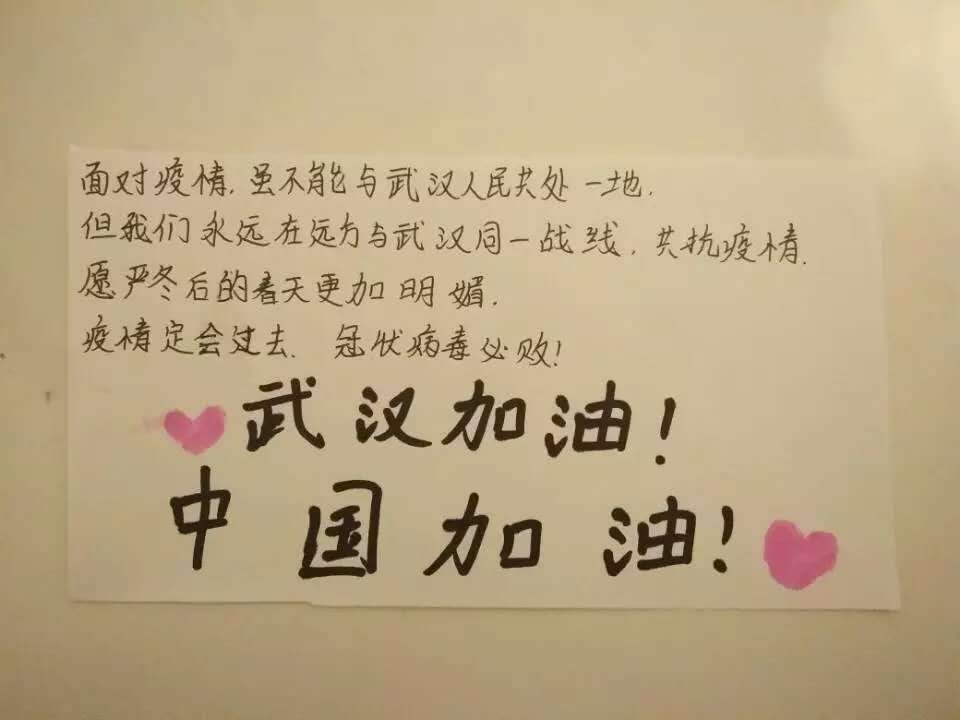 面对疫情,虽不能与武汉人民共处一地.
但我们永远在远方与武汉同一战线,共抗疫情.
愿严冬后的春天更加明媚.
疫情定会过去.冠状病毒必败!
武汉加油!
中国加油!